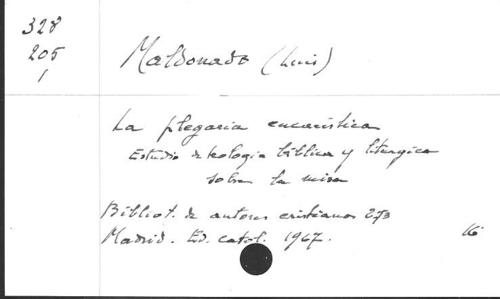 328
205
1
Maldonado (Luis)
La plegaria eucarística
Estudio de teología bíblica y liturgica
sobre la misa
Bibliot. de autores cristianos 273
Madrid. Ed. catol. 1967.
16